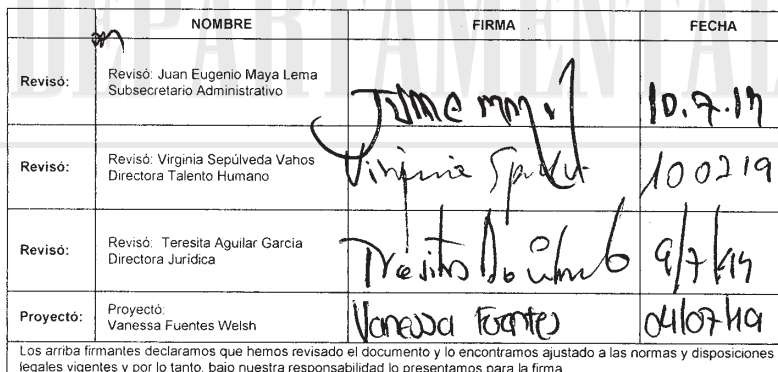 DEPARTAMENTAL
NOMBRE FIRMA FECHA
Revisó: Revisó: Juan Eugenio Maya Lema
Subsecretario Administrativo
10.7.19
Revisó: Revisó: Virginia Sepúlveda Vahos
Directora Talento Humano
Virginia 100719
Revisó: Revisó: Teresita Aguilar García
Directora Jurídica
9/7/19
Proyectó: Proyectó:
Vanessa Fuentes Welsh
Vanessa Fuentes 04/07/19
Los arriba firmantes declaramos que hemos revisado el documento y lo encontramos ajustado a las normas y disposiciones
legales vigentes y por lo tanto, bajo nuestra responsabilidad lo presentamos para la firma